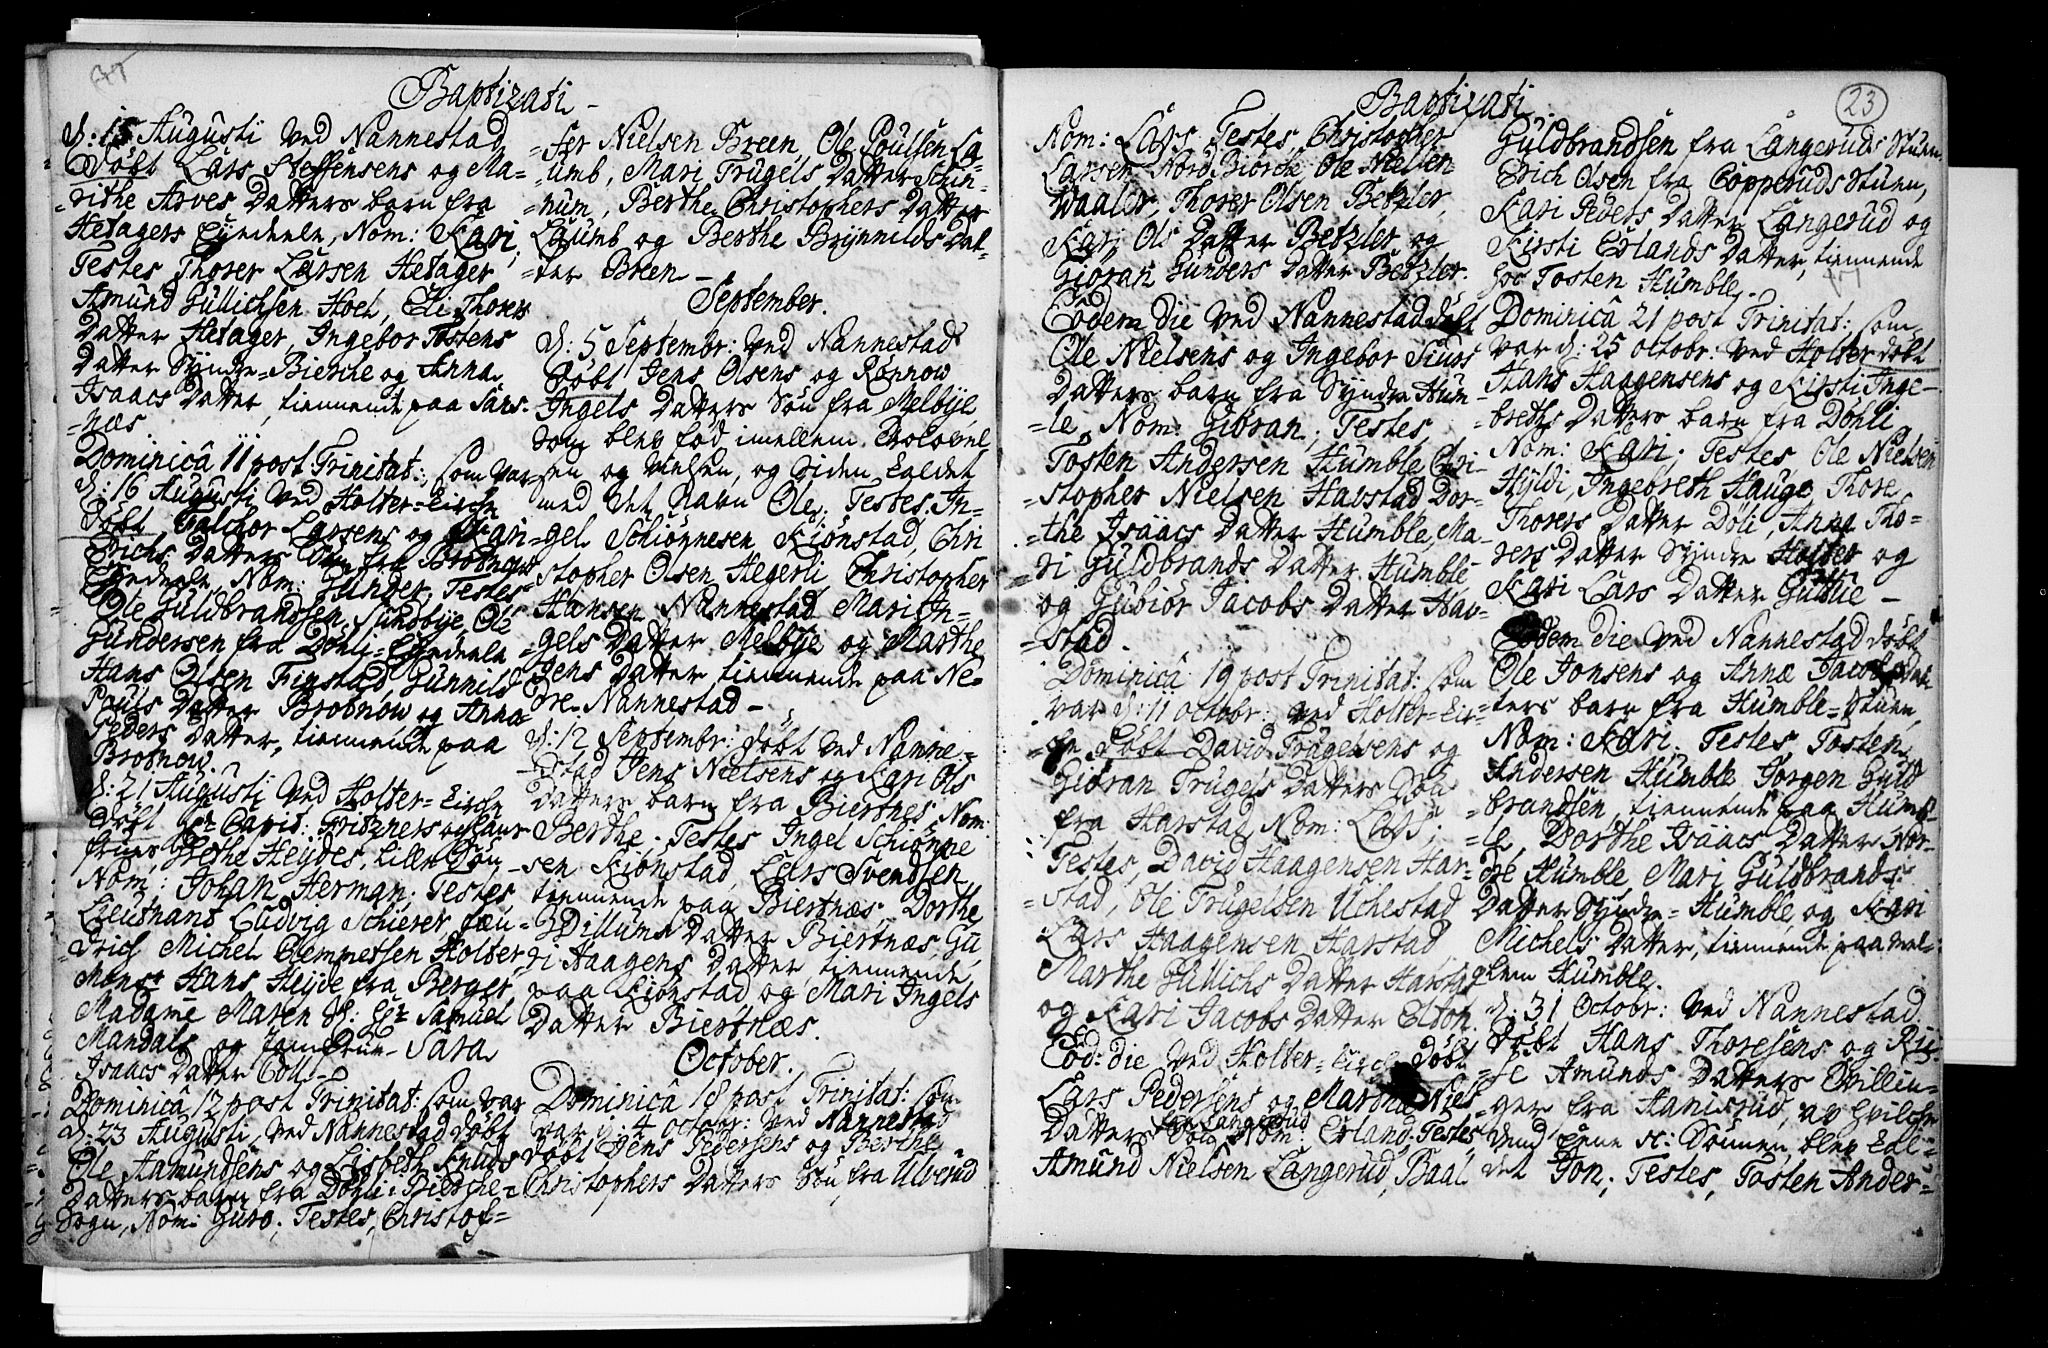 Baptizati
d: 15 Augusti ved Nannestad
Døbt Lars Steffensens og Ma=
=rithe Arves Datters barn fra
Hetagers Eyedeele, Nom: Kari;
Testes Thorer Larsen Hetager
Amund Gullichsen Hoel, Eli Thorers
Datter Hetager, Ingebor Tostens
Datter Syndre=Bierche og Anna
Isaacs Datter, tiennende paa Sørs=
=næs
Dominicâ 11 post Trinitat:, som var
d: 16 Augusti ved Holter=Kirche
Døbt Larsens og Kari
Erichs Datters Søn fra
Eyedeele, Nom: Gunder; Testes
Ole Guldbrandsen Sundbye Ole
Gundersen fra Døhli=Eyedeele
Hans Olsen Finstad, Gunnild
Pouls Datter Brobnow og Anna
Peders Datter, tiennende paa
Brobnow.
d: 21 Augusti ved Holter=Kirche
Døbt Hr Capit: Fritzners og
frues Heydes, lille Søn,
Nom: Johan Herman; Testes,
Lieutnant Ludvig Schierer,
=drich Michel Clemmetsen Holter,
Monsr Hans Heyde fra Berger
Madame Maren Sl: Hr Samuel
Mandals og Jomfrue Sara
Isaacs Datter
Dominicâ 12 post Trinitat: som var
d: 23 Augusti, ved Nannestad døbt
Ole Aamundsens og Lisbeth Knuds
Datters barn fra Døhli i Bierche=
Sogn, Nom: Guro; Testes, Christof=
=fer Nielsen Breen, Ole Poulsen La=
=umb, Mari Trugels Datter Schin=
=num, Berthe Christophers Datter
Laumb og Berthe Brynnilds Dat=
=ter Breen
September.
d: 5 Septembr: ved Nannestad
Døbt Jens Olsens og Rønnow
Ingels Datters Søn fra Melbye,
som blev fød imellem
og Nielsen, og siden kaldet
med det Navn Ole; Testes, In=
=gel Schiønnesen Kiønstad, Chri
stopher Olsen Hegerli Christopher
Hansen Nannestad Mari In=
=gels Datter Melbye og Marthe
Jens Datter tiennende paa Ne=
dre=Nannestad
d: 12 Septembr: døbt ved Nanne=
=stad Jens Nielsens og Kari Ols
Datters barn fra Biertnes, Nom:
Berthe; Testes, Ingel Schiønne
sen Kiønstad, Lars Svendsen
tiennende paa Biertnæs, Dorthe
Dillums Datter Biertnæs, Gu,
ri Haagens Datter, tiennende
paa Kiønstad og Mari Ingels
Datter Biertnæs.
October.
Dominicâ 18 post Trinitat: som
var d: 4 octobr: ved Nannestad
døbt Jens Pedersens og Berthe
Christophers Datters Søn, fra Ulverud
Baptizati
23
Nom: Lars; Testes, Christopher
Larsen Nord Biørck, Ole Nielsen
Waaler, Thorer Olsen Betzler,
Kari Ols Datter Betzler og
Giøran Gunders Datter Betzler.
Eodem die ved Nannestad døbt
Ole Nielsens og Ingebor Siurs
Datters barn fra Syndre Hum
=le, Nom: Giøran; Testes,
Tosten Andersen Humble, Chri=
=stopher Nielsen Havstad Dor=
=the Isaacs Datter Humble, Ma=
=ri Guldbrands Datter Humble
og Gubiør Jacobs Datter Hav=
=stad.
Dominicâ 19 post Trinitat: som
var d: 11 octobr: ved Holter=Kir=
=che Døbt David Trugelsens og
Giøran Trugels Datters Søn
fra Harstad, Nom: Lars;
Testes, David Haagensen Har=
=stad, Ole Trugelsen Uchestad
Lars Haagensen Harstad
Marthe Gullichs Datter Harstad
og Kari Jacobs Datter Elton.
Eod: die ved Holter=Kirche døbt
Lars Pedersens og Marthe Niels
Datters Søn fra Langerud Nom: Erland; Testes
Amund Nielsen Langerud, Baal
Guldbrandsen fra Langeruds Stuen
Erich Olsen fra Copperuds Stuen,
Kari Peders Datter Langerud og
Kirsti Erlands Datter, tiennende
hos Tosten Humble.
Dominicâ 21 post Trinitat: som
var d: 25 octobr: ved Holter døbt
Hans Haagensens og Kirsti Inge=
=breths Datters barn fra Dohli
Nom: Kari; Testes, Ole Nielsen
Hyldi, Ingebreth Hauge, Thore
Thorers Datter Døli, Anna Tho=
rers Datter Syndre Holter og
Kari Lars Datter Guttue
Eodem die ved Nannestad døbt
Ole Jonsens og Annæ Jacobs Dat
=ters barn fra Humble=Stuen,
Nom: Kari; Testes, Tosten
Andersen Humble Jørgen Guld
=brandsen, tiennende paa Humb=
=le, Dorthe Isaacs Datter Nor=
dre Humble, Mari Guldbrands
Datter Syndre=Humble, og Kari
Michels Datter, tiennende paa mel=
=lem Humble.
d: 31 Octobr: ved Nannestad
Døbt Hans Thoresens og
Amunds Datters Tvillin=
=ger fra Hanisrud, av hvilche
dend Eene n: Sønnen blev kal=
=det Jon; Testes, Tosten Ander=